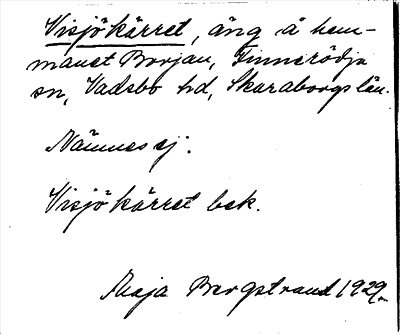 Visjökärret, äng å hem-
manet Borjan, Finnerödja
sn, Vadsbo hd, Skaraborgs län.
Nämnes ej.
Visjökärret bek.
Maja Bergstrand 1929.